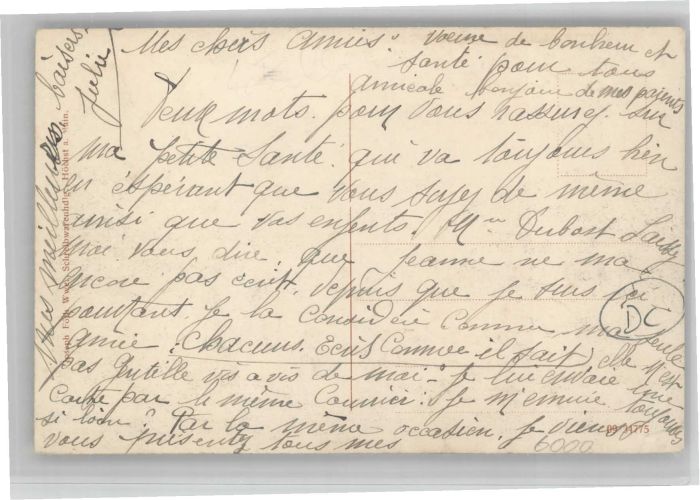 Mes chers amies. voeux de bonheur et
santé pour tous
amicale bonjour de mes parents
Deux mots. pour vous rassurez. sur
ma petite Santé. qui va toujours bien
en espérant que vous soyez de même
ainsi que vos enfents. Dubost
moi vous dire. que Jeanne ne ma
encore pas écrit. depuis que je suis ici
pourtant. je la considère comme ma seule
amie. chacuns. Ecris comme il sait, elle n'est
pas Gentille vis a vis de moi - je lui envoie une
carte par le même courrier. je m'ennuie toujours
si loin? Par la même occasion. je viens
vous présentez tous mes
vœux meilleurs baisers
Julie
DC
6000
Joseph Wwe. Schreibwarenhdlg., Höchst a. Main.